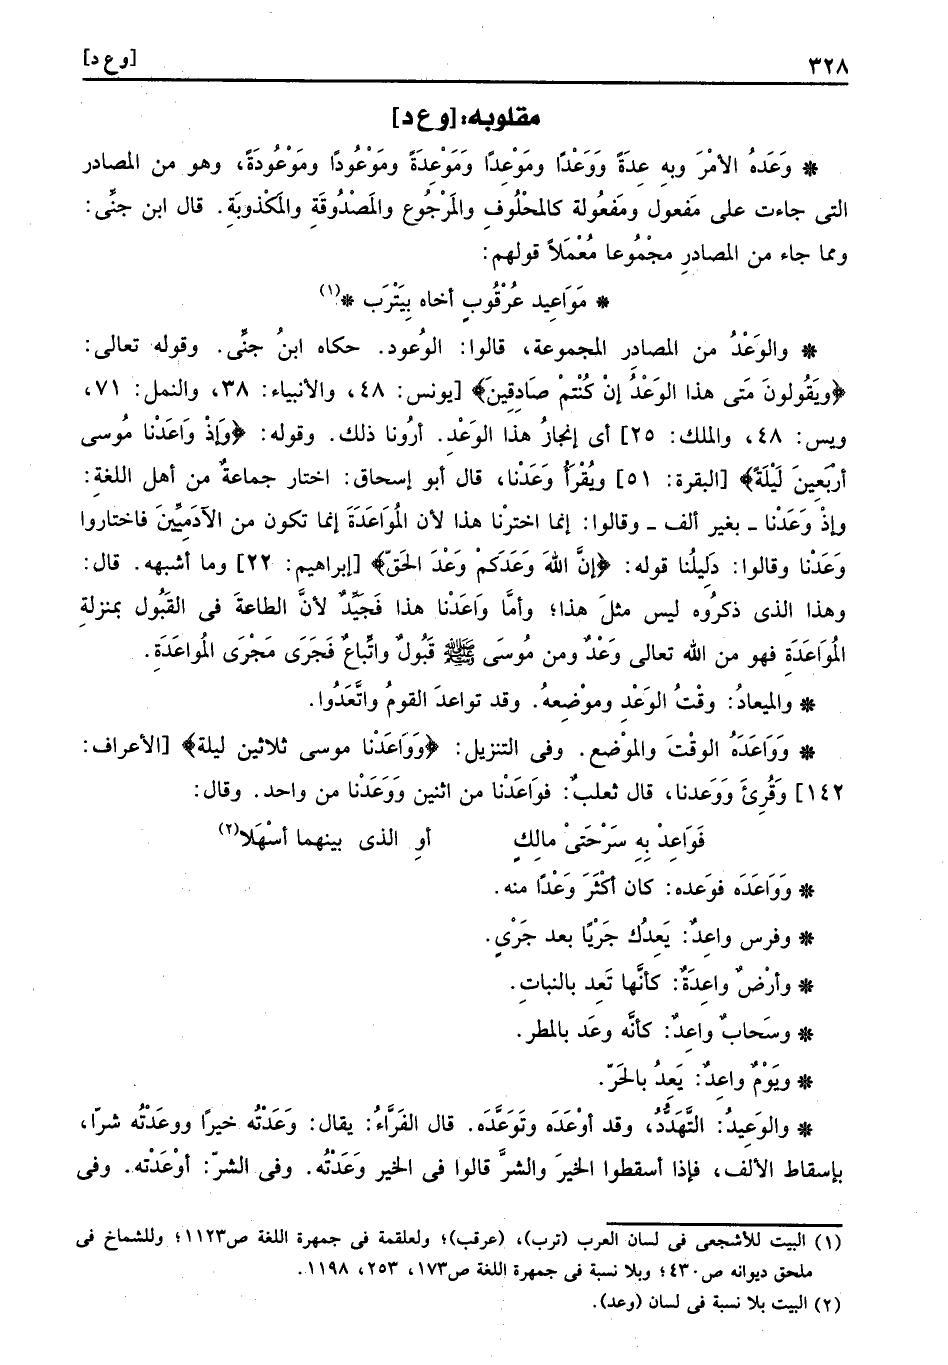 ٣٢٨ [و ع د]
مقلوبه: [و ع د]
* وَعَدَهُ الأمْرَ وبه عِدَةً وَوَعْدًا ومَوْعِدًا وَمَوْعِدَةً ومَوْعُودًا ومَوْعُودَةً، وهو من المصادر
التى جاءت على مَفعول ومَفعولة كالمحْلُوفِ والمَرْجُوع والمَصْدُوقَة والمَكْذوبَة. قال ابن جنِّى:
ومما جاء من المصادرِ مجْمُوعا مُعْمَلاً قولهم:
* مَوَاعِيد عُرْقُوبٍ أخاه بِيَتْرَب *(١)
* والوَعْدُ من المصادرِ المجموعة، قالوا: الوُعود. حكاه ابنُ جنِّى. وقوله تعالى:
﴿ويَقُولونَ مَتى هذا الوَعْدُ إنْ كُنْتمْ صَادِقِينَ﴾ [يونس: ٤٨، والأنبياء: ٣٨، والنمل: ٧١،
ويس: ٤٨، والملك: ٢٥] أى إنجازُ هذا الوَعْدِ. أرُونا ذلك. وقوله: ﴿وَإذْ وَاعَدْنا مُوسى
أرْبَعِينَ لَيْلَةً﴾ [البقرة: ٥١] ويُقْرَأُ وَعَدْنا، قال أبو إسحاق: اختار جماعةٌ من أهل اللغة:
وإذْ وَعَدْنا ـ بغير ألف ـ وقالوا: إنما اخترْنا هذا لأن المُوَاعَدَةَ إنما تكون من الآدَمِيِّينَ فاختاروا
وَعَدْنا وقالوا: دَلِيلُنا قوله: ﴿إنَّ اللهَ وَعَدَكمْ وَعْدَ الحَقّ﴾ [إبراهيم: ٢٢] وما أشبهه. قال:
وهذا الذى ذكرُوه ليس مثلَ هذا؛ وأمَّا وَاعَدْنا هذا فَجَيِّدٌ لأنَّ الطاعَةَ فى القَبُول بمنزلةِ
المُوَاعَدَةِ فهو من الله تعالى وَعْدٌ ومن مُوسَى ﷺ قَبُولٌ واتِّباعٌ فَجَرَى مَجْرَى المُواعَدَةِ.
* والميعادُ: وقْتُ الوَعْدِ وموْضِعهُ. وقد تواعدَ القومُ واتَّعَدُوا.
* وَوَاعَدَهُ الوقْتَ والموْضع. وفى التنزيل: ﴿وَوَاعَدْنا موسى ثلاثين ليلة﴾ [الأعراف:
١٤٢] وَقُرِئَ وَوَعَدنا، قال ثعلبٌ: فوَاعَدْنا من اثنين وَوَعَدْنا من واحد. وقال:
فَوَاعِدْ بِهِ سَرْحَتىْ مالكٍ أوِ الذى بينهما أسْهَلا(٢)
* وَوَاعَدَه فوَعده: كان أكْثَرَ وَعْدًا منه.
* وفرس واعِدٌ: يَعِدُك جَرْيًا بعد جَرْىٍ.
* وأرْضٌ واعِدَةٌ: كأنَّها تَعِد بالنباتِ.
* وسَحابٌ واعِدٌ: كأنَّه وعَد بالمطر.
* ويَوْمٌ واعِدٌ: يَعِدُ بالحَرّ.
* والوَعِيدُ: التَّهَدُّدُ، وقد أوْعَدَه وتَوَعَّدَه. قال الفَرَّاءُ: يقال: وَعَدْتُه خيرًا ووعدْتُه شرّا،
بإسقاط الألف، فإذا أسقطوا الخيرَ والشرَّ قالوا فى الخير وَعَدْتُه. وفى الشرّ: أوْعَدْته. وفى
(١) البيت للأشجعى فى لسان العرب (ترب)، (عرقب)؛ ولعلقمة فى جمهرة اللغة ص١١٢٣؛ وللشماخ فى
ملحق ديوانه ص٤٣٠؛ وبلا نسبة فى جمهرة اللغة ص١٧٣، ٢٥٣، ١١٩٨.
(٢) البيت بلا نسبة فى لسان (وعد).